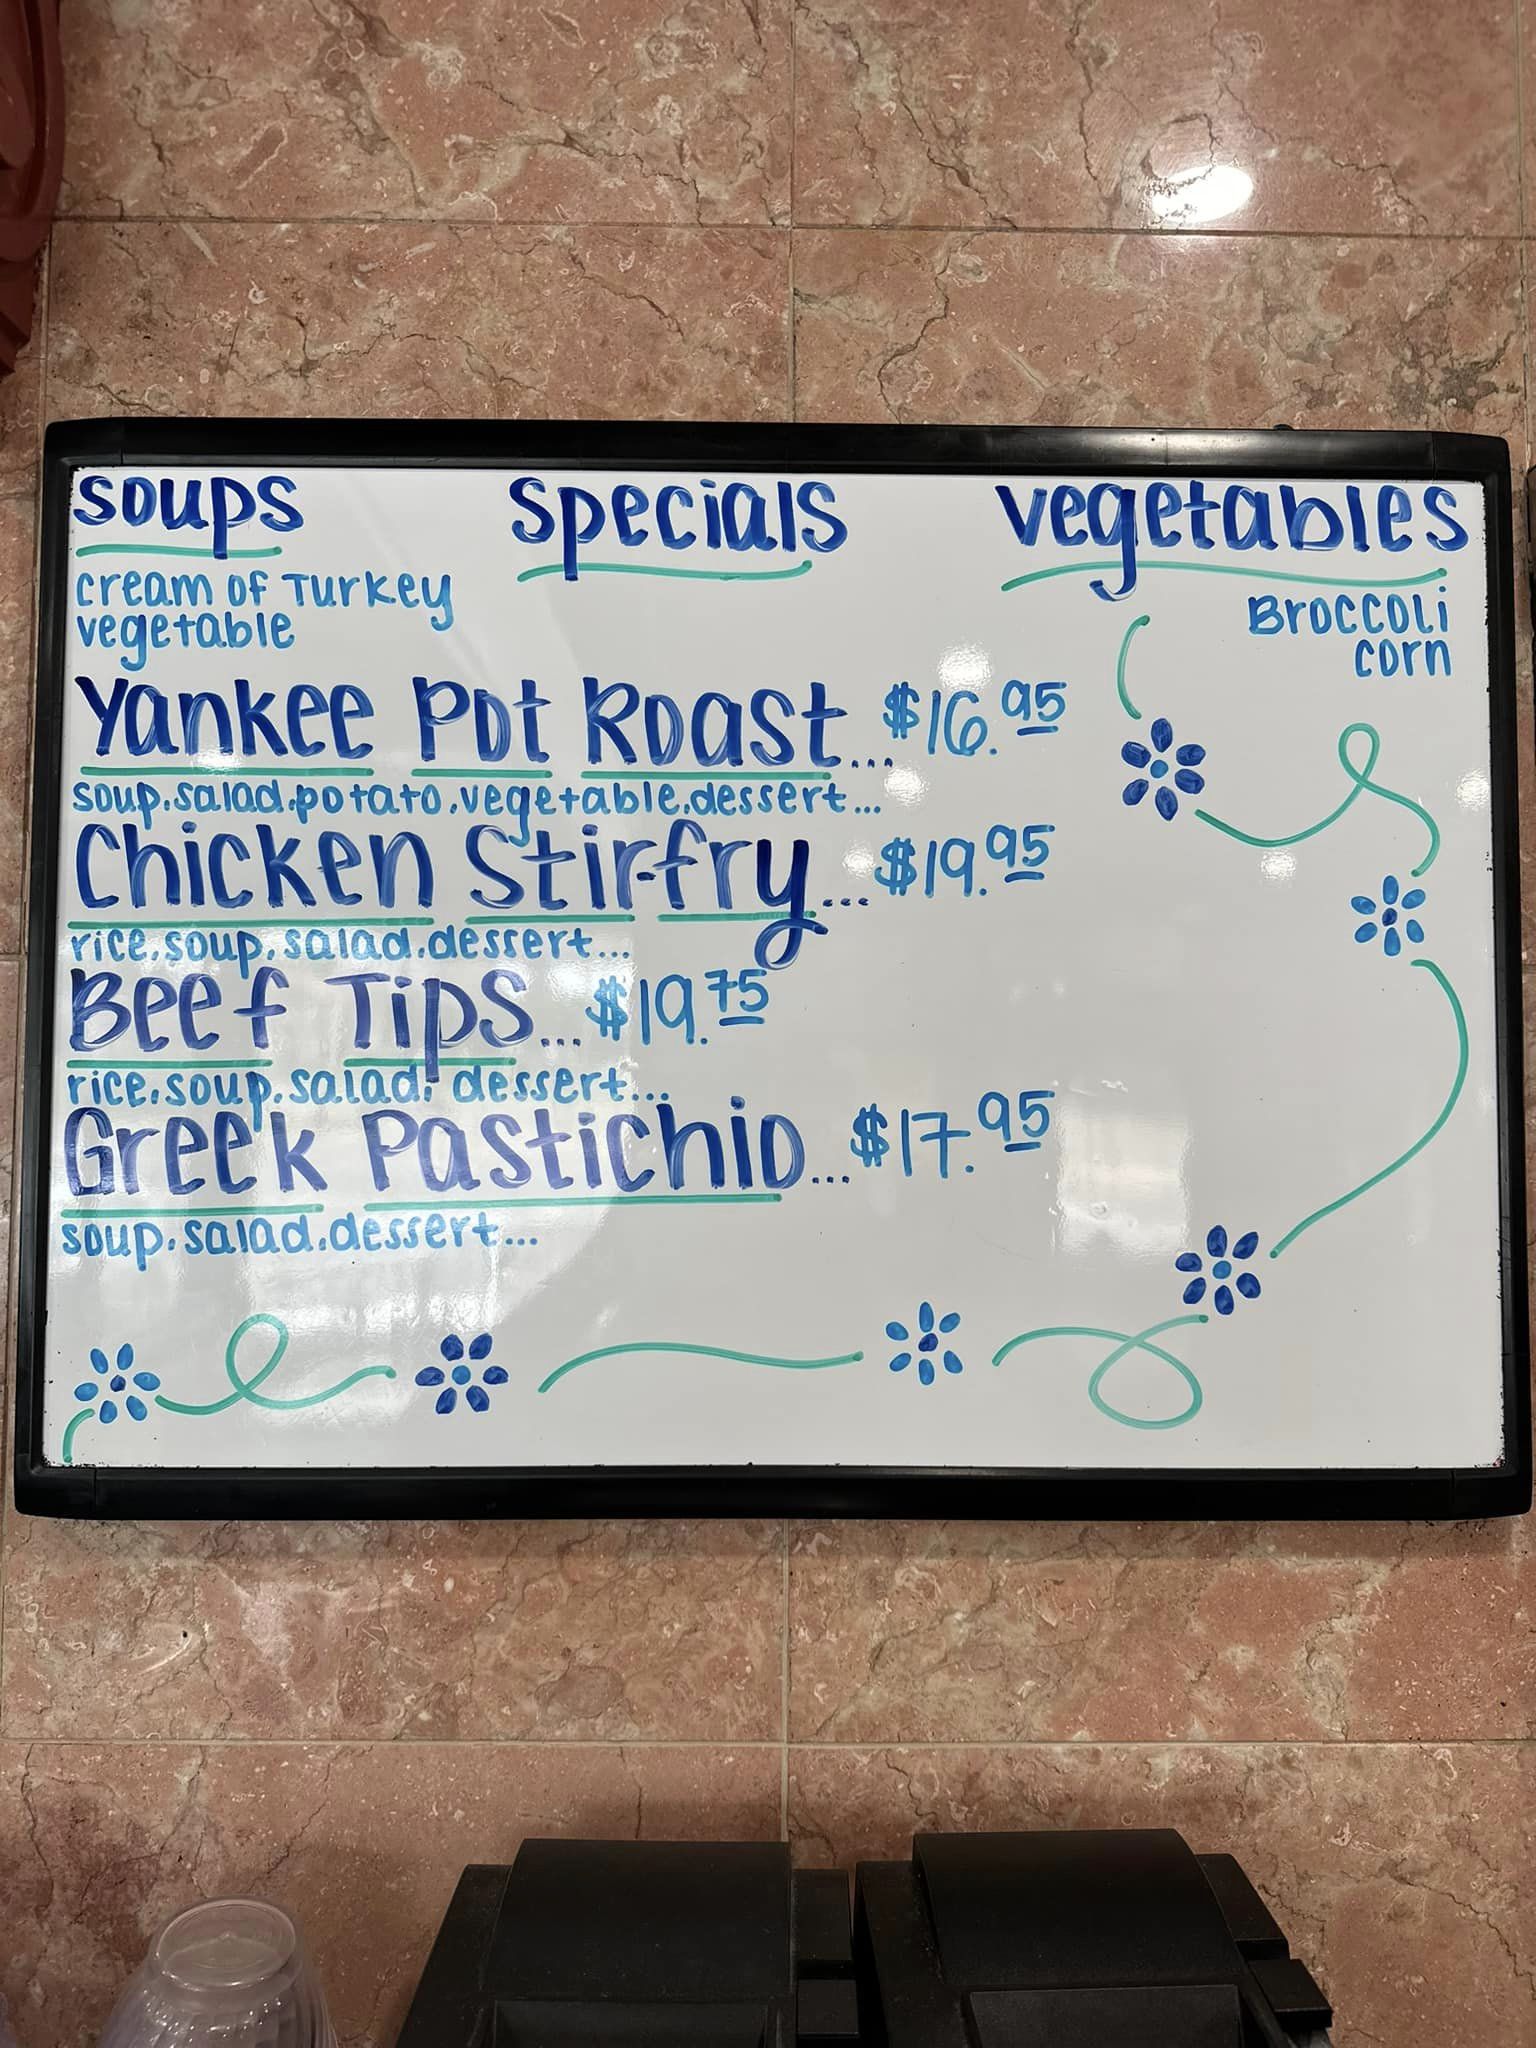 soups specials vegetables
cream of Turkey Broccoli
vegetable corn
Yankee Pot Roast...$16.95
soup.salad.potato.vegetable.dessert...
Chicken Stir-fry...$19.95
rice.soup.salad.dessert...
Beef Tips...$19.75
rice.soup.salad.dessert...
Greek Pastichio...$17.95
soup.salad.dessert...